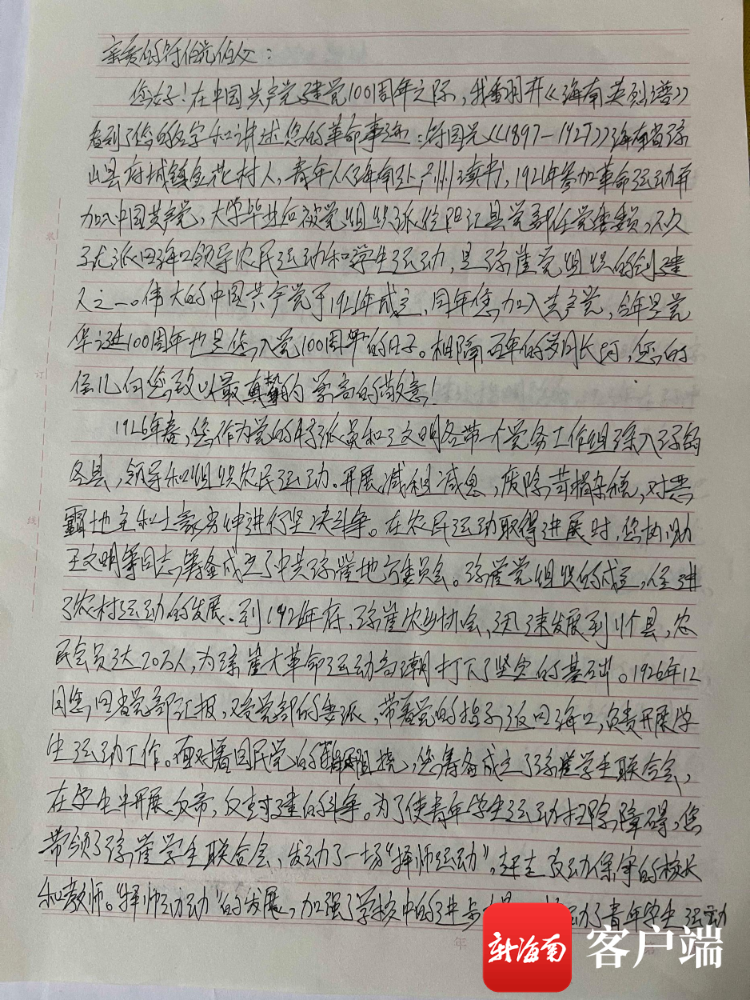 亲爱的符伯光伯父：
您好！在中国共产党建党100周年之际，我翻开《海南英烈谱》
看到了您的名字和讲述您的革命事迹：符国光《1897—1927》海南省琼
山县府城镇金花村人，青年人从海南赴广州读书，1921年参加革命运动并
加入中国共产党，大学毕业后被党组织派给阳江县党部任党委员，不久
又派回海口领导农民运动和学生运动，是琼崖党组织的创建
人之一。伟大的中国共产党于1921年成立，同年您加入共产党，今年是党
华诞100周年也是您入党100周年的日子。相隔百年的岁月长河，您的
侄儿向您致以最真挚的崇高的敬意！
1926年春，您作为党的特派员和王文明各带一个党务工作组深入琼的
各县，领导和组织农民运动。开展减租减息，废除苛捐杂税，对恶
霸地主和土豪劣绅进行坚决斗争。在农民运动取得进展时，您协助
王文明等同志，筹备成立了中共琼崖地方委员会。琼崖党组织的成立，促进
了农村运动的发展。到1926年底，琼崖农民协会，迅速发展到11个县，农
民会员达20万人，为琼崖大革命运动高潮打下了坚实的基础。1926年12
月您，回省党部汇报，又受党部的委派，带着党的指示返回海口，负责开展学
生运动工作。面对着国民党的阻挠，您筹备成立了琼崖学生联合会，
在学生中开展反帝，反封建的斗争。为了使青年学生运动扫除障碍，您
带领了琼崖学生联合会，发动了一场“择师运动”，赶走反动保守的校长
和教师。“择师运动”的发展，加强了学校中的进步 动了青年学生运动
年
新海南 客户端